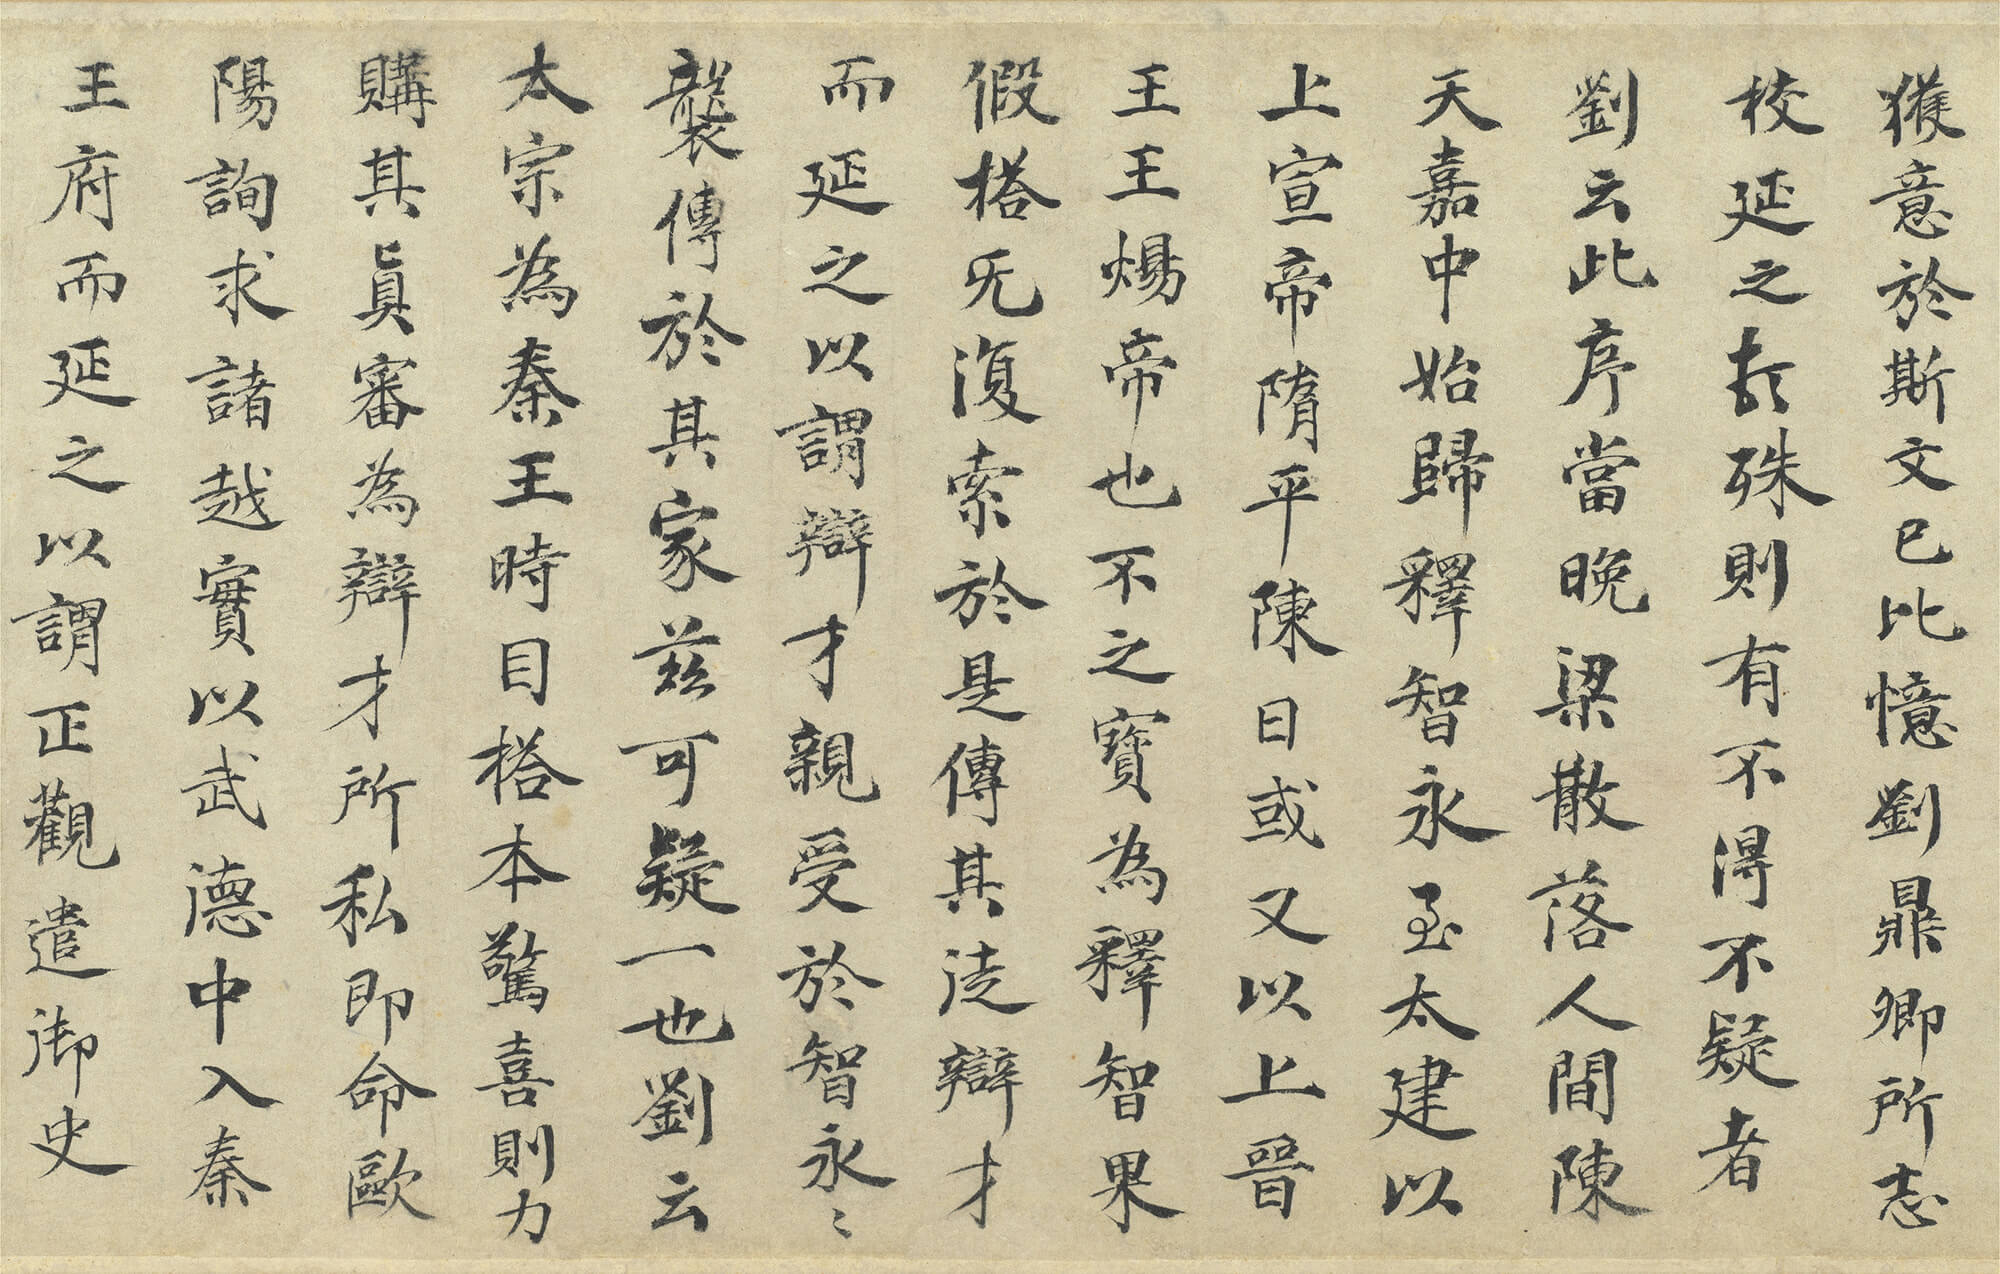 獲意於斯文已比憶劉鼎卿所志
校延之於殊則有不得不疑者
劉云此序當晚梁散落人間陳
天嘉中始歸釋智永至太建以
上宣帝隋平陳日或又以上晉
王王煬帝也不之寶為釋智果
假搭旡復索於是傳其徒辯才
而延之以謂辯才親受於智永〻
襲傳於其家茲可疑一也劉云
太宗為秦王時目搭本驚喜則力
購其眞審為辯才所私即命歐
陽詢求諸越實以武德中入秦
王府而延之以謂正觀遣御史